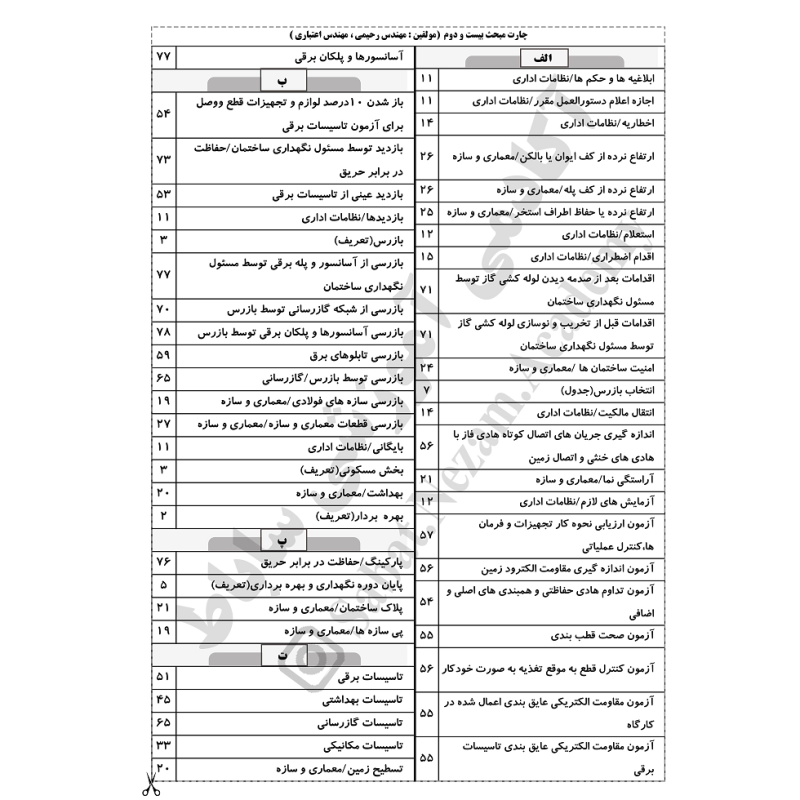 چارت مبحث بیست و دوم (مولفین : مهندس رحیمی ، مهندس اعتباری )
الف
ابلاغیه ها و حکم ها/نظامات اداری ۱۱
اجازه اعلام دستورالعمل مقرر/نظامات اداری ۱۱
اخطاریه/نظامات اداری ۱۴
ارتفاع نرده از کف ایوان یا بالکن/معماری و سازه ۲۶
ارتفاع نرده از کف پله/معماری و سازه ۲۶
ارتفاع نرده یا حفاظ اطراف استخر/معماری و سازه ۲۵
استعلام/نظامات اداری ۱۲
اقدام اضطراری/نظامات اداری ۱۵
اقدامات بعد از صدمه دیدن لوله کشی گاز توسط
مسئول نگهداری ساختمان ۷۱
اقدامات قبل از تخریب و نوسازی لوله کشی گاز
توسط مسئول نگهداری ساختمان ۷۱
امنیت ساختمان ها /معماری و سازه ۲۴
انتخاب بازرس(جدول) ۷
انتقال مالکیت/نظامات اداری ۱۴
اندازه گیری جریان های اتصال کوتاه هادی فاز با
هادی های خنثی و اتصال زمین ۵۶
آراستگی نما/معماری و سازه ۲۱
آزمایش های لازم/نظامات اداری ۱۲
آزمون ارزیابی نحوه کار تجهیزات و فرمان
ها،کنترل عملیاتی ۵۷
آزمون اندازه گیری مقاومت الکترود زمین ۵۶
آزمون تداوم هادی حفاظتی و همبندی های اصلی و
اضافی ۵۴
آزمون صحت قطب بندی ۵۵
آزمون کنترل قطع به موقع تغذیه به صورت خودکار ۵۶
آزمون مقاومت الکتریکی عایق بندی اعمال شده در
کارگاه ۵۵
آزمون مقاومت الکتریکی عایق بندی تاسیسات
برقی ۵۵
آسانسورها و پلکان برقی ۷۷
ب
باز شدن ۱۰درصد لوازم و تجهیزات قطع ووصل
برای آزمون تاسیسات برقی ۵۴
بازدید توسط مسئول نگهداری ساختمان/حفاظت
در برابر حریق ۷۳
بازدید عینی از تاسیسات برقی ۵۳
بازدیدها/نظامات اداری ۱۱
بازرس(تعریف) ۳
بازرسی از آسانسور و پله برقی توسط مسئول
نگهداری ساختمان ۷۷
بازرسی از شبکه گازرسانی توسط بازرس ۷۰
بازرسی آسانسورها و پلکان برقی توسط بازرس ۷۸
بازرسی تابلوهای برق ۵۹
بازرسی توسط بازرس/گازرسانی ۶۵
بازرسی سازه های فولادی/معماری و سازه ۱۹
بازرسی قطعات معماری و سازه/معماری و سازه ۲۷
بایگانی/نظامات اداری ۱۱
بخش مسکونی(تعریف) ۳
بهداشت/معماری و سازه ۲۰
بهره بردار(تعریف) ۲
پ
پارکینگ/حفاظت در برابر حریق ۷۶
پایان دوره نگهداری و بهره برداری(تعریف) ۵
پلاک ساختمان/معماری و سازه ۲۱
پی سازه ها/معماری و سازه ۱۹
ت
تاسیسات برقی ۵۱
تاسیسات بهداشتی ۴۵
تاسیسات گازرسانی ۶۵
تاسیسات مکانیکی ۳۳
تسطیح زمین/معماری و سازه ۲۰
آکادمی آموزشی ساباط
Sabat.Nezam.Academy